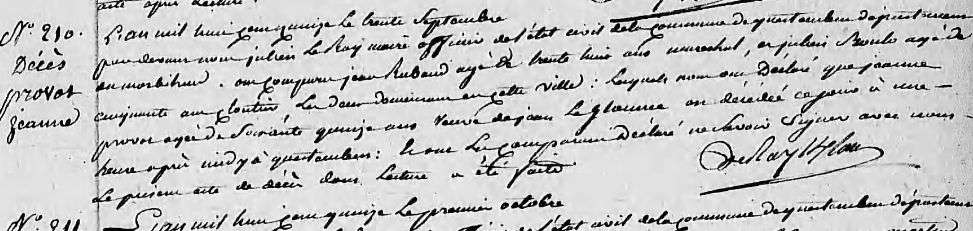 acte après lecture
N.° 210. L'an mil huit cent quinze Le trente Septembre
Décès par devant nous julien Le Ray maire officier de l'état civil de la commune de questembert département
provost du morbihan. ont comparu jean Rubaud agé de trente huit ans marechal, et julien agé de
jeanne cinquante ans cloutier Les deux demeurant en cette ville: Lesquels nous ont Déclaré que jeanne
provost agé de Soixante quinze ans veuve de jean Le est décédée ce jour à une
heure après midy à questembert: Et ont Les comparans Déclaré ne Savoir Signer avec nous
Le présent acte de décès dont Lecture a été faite
N.° 211 L'an mil huit cent quinze Le premier octobre
officier de l'état civil de la commune de questembert département